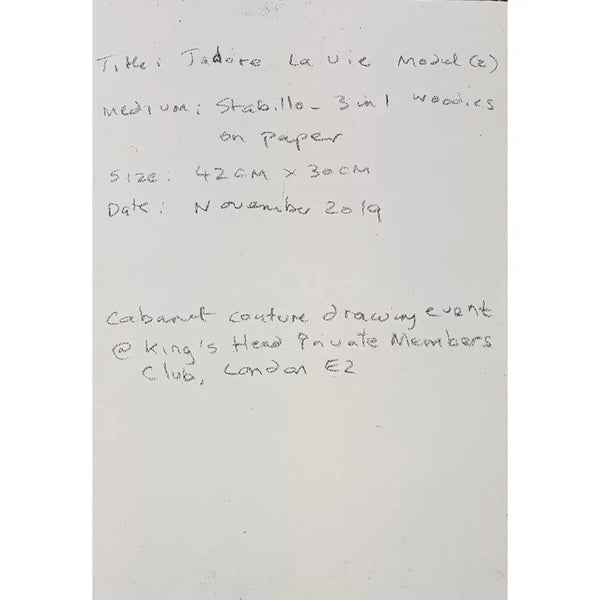 Title: Jadore La Vie Model (2)
Medium: Stabillo - 3 in 1 woodies
on paper
Size: 42cm x 30cm
Date: November 2019
Cabaret couture drawing event
@ King's Head Private Members
Club, London E2